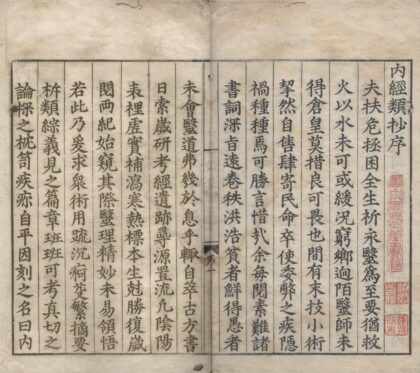 內經類抄序
夫扶危拯困全生祈永毉爲至要猶救
火以水未可或緩况窮鄉逈陌毉師未
得倉皇莫措良可畏也間有末技小術
挈然自售肆寄民命卒使委弊之疾隱
禍種種焉可勝言惜㢤余毎閱素難諸
書詞深旨遠卷秩洪浩貧者鮮得愚者
未會毉道弗幾於息乎輙自萃古方書
日索歲研考經遺跡尋源置流凢陰陽
表裡虛實補瀉寒熱標本生剋勝復歲
閱兩紀始窺其際毉理精妙未易領悟
若此乃爰求衆術用䟽沉疴芟繁摘要
柝類綜義見之篇章班班可考真切之
論探之枕笥疾亦自平因刻之名曰內